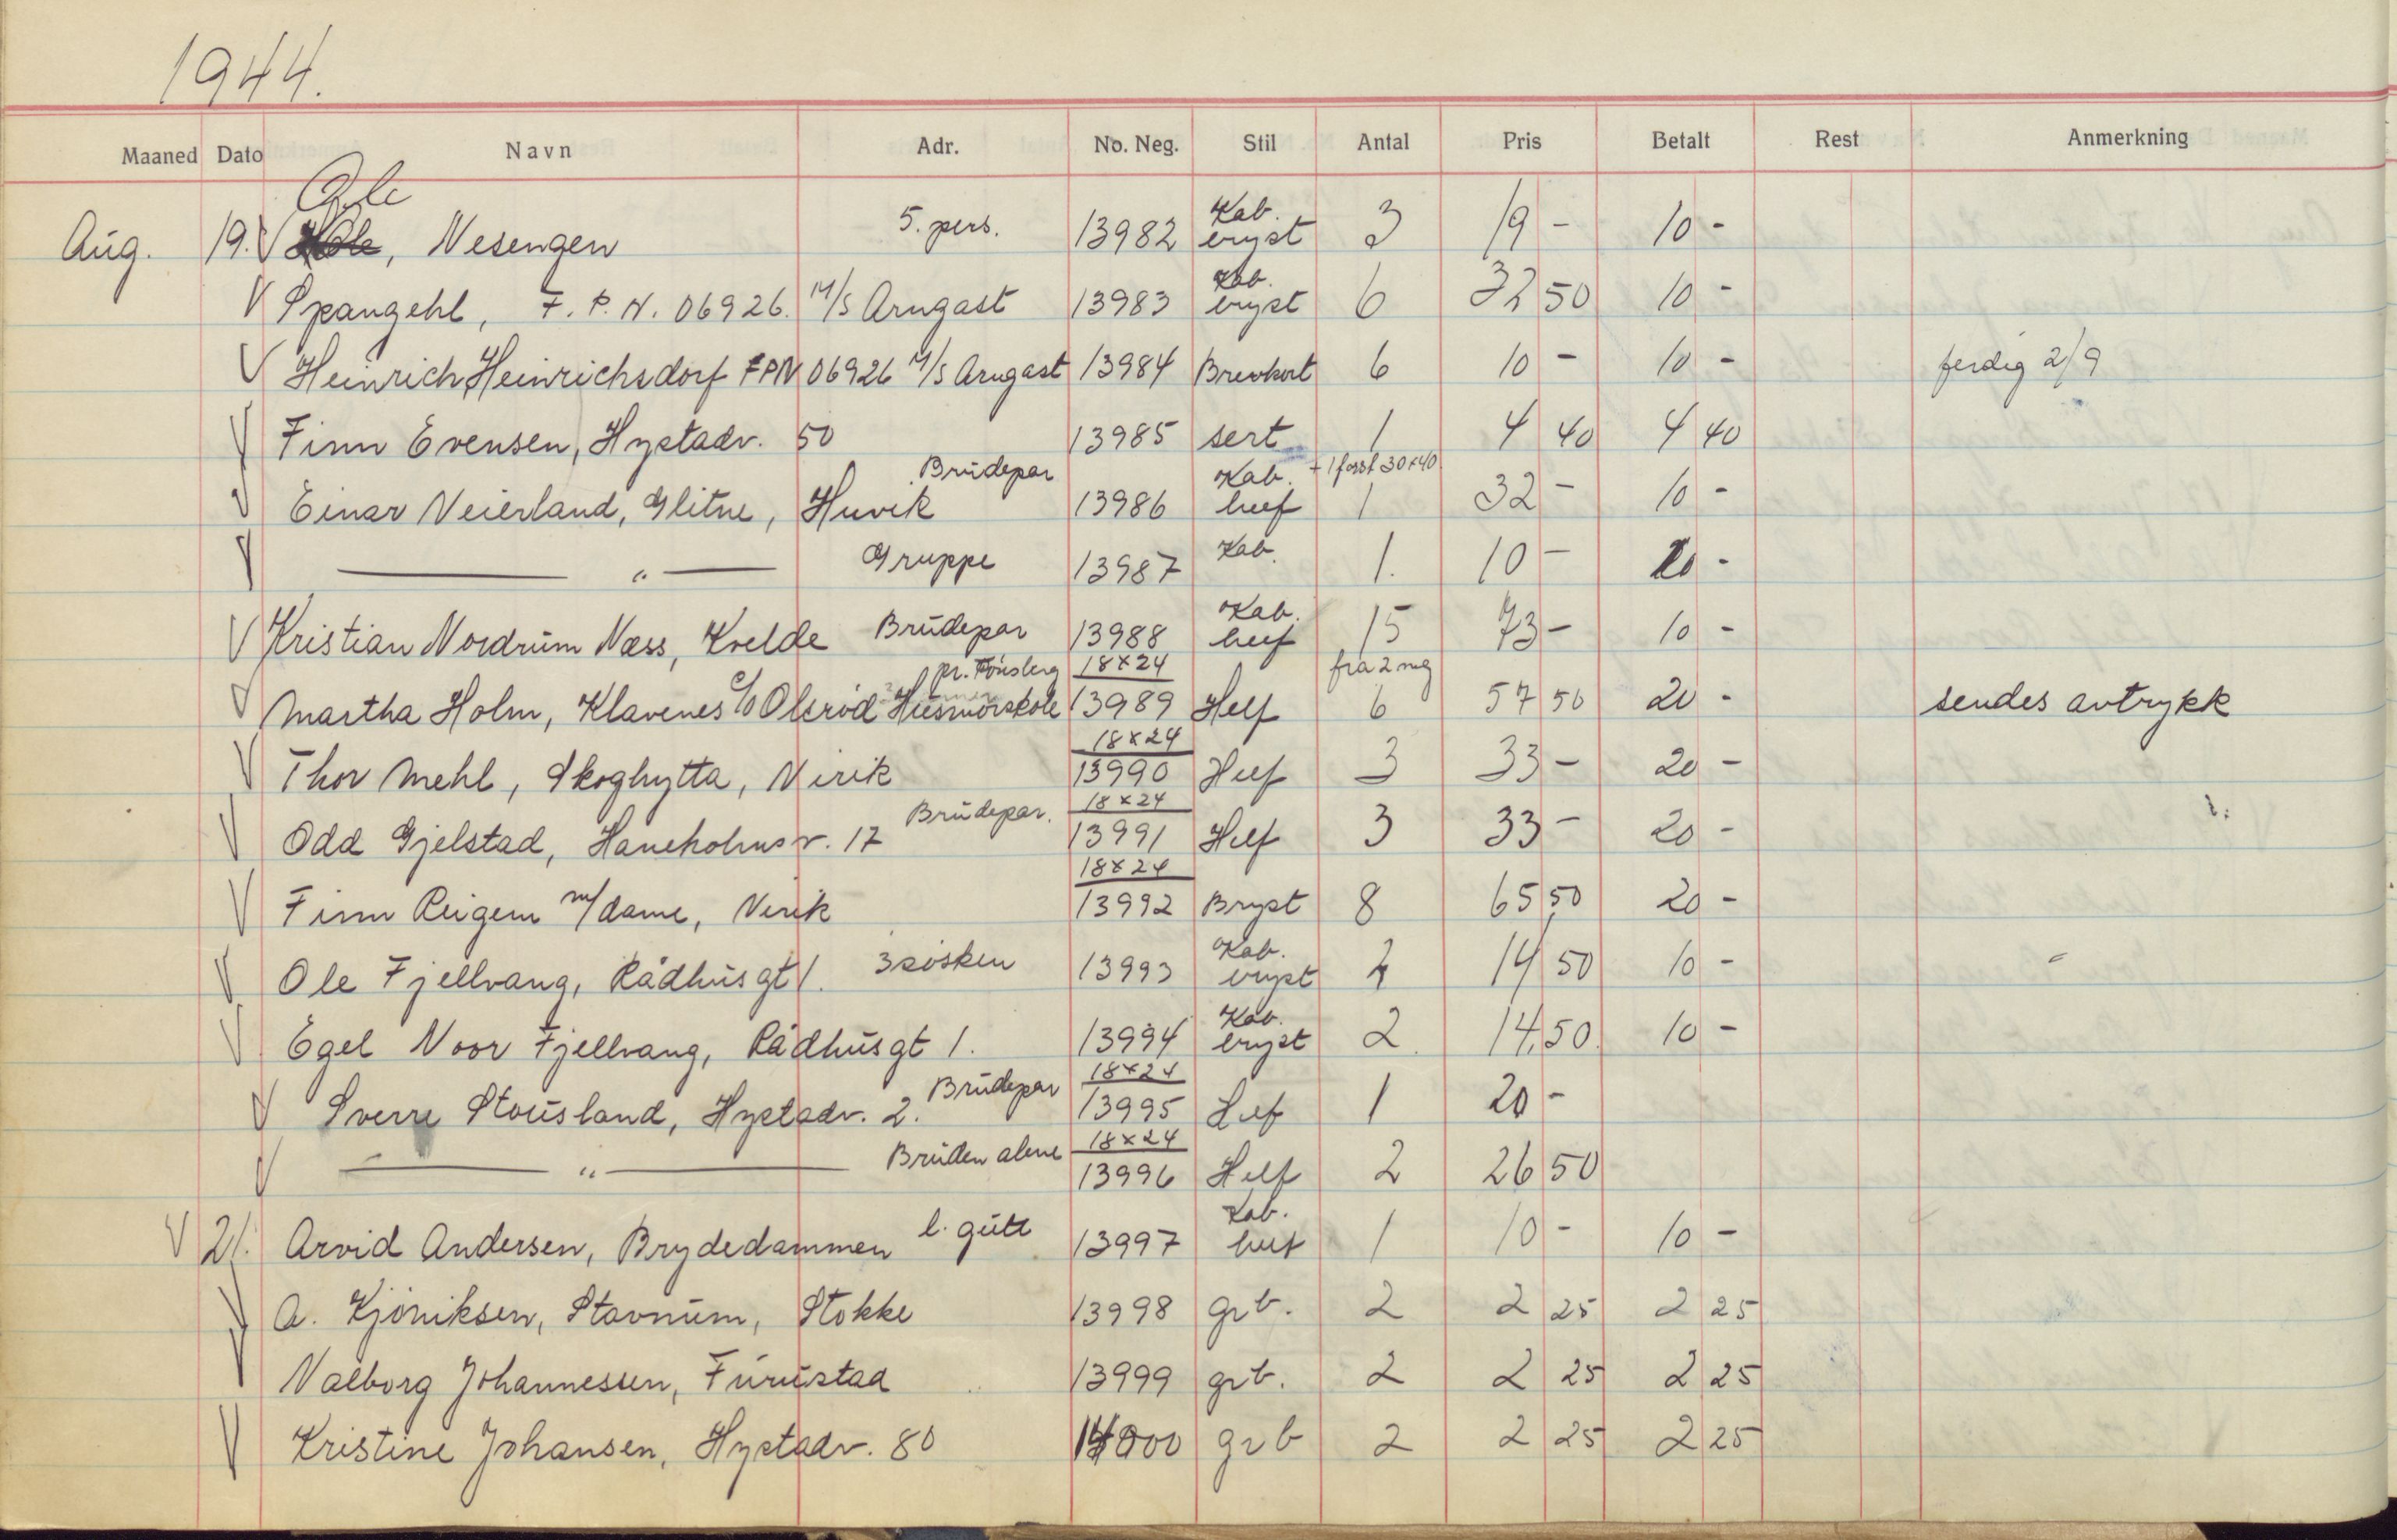 1944.
Maaned Dato Navn Adr. No. Neg. Stil Antal Pris Betalt Rest Anmerkning
Aug. 19. V Ole, Nesengen 5. pers. 13982 Kab. bryst 3 19 - 10 -
V Spangehl, F. P. N. 06926. M/S Arngast 13983 Kab. bryst 6 32 50 10 -
V Heinrich Heinrichsdorf FPN 06926 M/S Arngast 13984 Brevkort 6 10 - 10 - ferdig 2/9
V Finn Evensen, Hystadv. 50 13985 sert 1 4 40 4 40
V Einar Veierland, Glitne, Huvik Brudepar 13986 Kab. helf + 1 forst 30x40 1 32 - 10 -
V — " — Gruppe 13987 Kab. 1. 10 - 20 -
V Kristian Nordrum Næss, Kvelde Brudepar 13988 Kab. helf 15 73 - 10 -
V Martha Holm, Klavenes c/o Olsrød Husmorskole pr. Tönsberg 18x24 13989 Helf fra 2 neg 6 57 50 20 - sendes avtrykk
V Thor Mehl, Skoghytta, Virik 18x24 13990 Helf 3 33 - 20 -
V Odd Gjelstad, Haneholmsv. 17 Brudepar. 18x24 13991 Helf 3 33 - 20 -
V Finn Reigem m/dame, Virik 18x24 13992 Bryst 8 65 50 20 -
V Ole Fjellvang, Rådhusgt 1. 3 søsken 13993 Kab. bryst 2 14 50 10 -
V Egel Noor Fjellvang, Rådhusgt 1. 13994 Kab. bryst 2 14,50 10 -
V Sverre Stousland, Hystadv. 2. Brudepar 18x24 13995 Helf 1 20 -
V — " — Bruden alene 18x24 13996 Helf 2 26 50
V 21. Arvid Andersen, Brydedammen l. gutt 13997 Kab. helf 1 10 - 10 -
V A. Kjøniksen, Stavnum, Stokke 13998 grb. 2 2 25 2 25
V Valborg Johannessen, Furustad 13999 grb. 2 2 25 2 25
V Kristine Johansen, Hystadv. 80 14000 grb 2 2 25 2 25